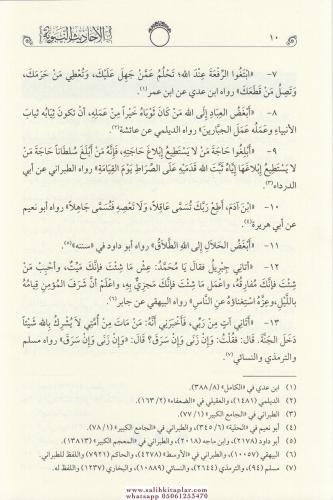 ١٠
الأحاديث النبوية
٧- «ابْتَغُوا الرِّفْعَةَ عِنْدَ اللهِ؛ تَحْلُمُ عَمَّنْ جَهِلَ عَلَيْكَ، وَتُعْطِي مَنْ حَرَمَكَ،
وَتَصِلُ مَنْ قَطَعَكَ» رواه ابن عدي عن ابن عمر(١).
٨- «أَبْغَضُ العِبَادِ إِلَى اللهِ مَنْ كَانَ ثَوْبَاهُ خَيْراً مِنْ عَمَلِهِ، أَنْ تَكُونَ ثِيَابُهُ ثِيَابَ
الأَنْبِيَاءِ وَعَمَلُهُ عَمَلَ الجَبَّارِينَ» رواه الديلمي عن عائشة(٢).
٩- «أَبْلِغُوا حَاجَةَ مَنْ لَا يَسْتَطِيعُ إِبْلَاغَ حَاجَتِهِ، فَإِنَّهُ مَنْ أَبْلَغَ سُلْطَاناً حَاجَةَ مَنْ
لَا يَسْتَطِيعُ إِبْلَاغَهَا إِيَّاهُ ثَبَّتَ اللهُ قَدَمَيْهِ عَلَى الصِّرَاطِ يَوْمَ القِيَامَةِ» رواه الطبراني عن أبي
الدرداء(٣).
١٠- «ابْنَ آدَمَ، أَطِعْ رَبَّكَ تُسَمَّى عَاقِلاً، وَلَا تَعْصِهِ فَتُسَمَّى جَاهِلاً» رواه أبو نعيم
عن أبي هريرة(٤).
١١- «أَبْغَضُ الحَلَالِ إِلَى اللهِ الطَّلَاقُ» رواه أبو داود في «سننه»(٥).
١٢- «أَتَانِي جِبْرِيلُ فَقَالَ: يَا مُحَمَّدُ: عِشْ مَا شِئْتَ فَإِنَّكَ مَيِّتٌ، وَأَحْبِبْ مَنْ
شِئْتَ فَإِنَّكَ مُفَارِقُهُ، وَاعْمَلْ مَا شِئْتَ فَإِنَّكَ مَجْزِيٌّ بِهِ، وَاعْلَمْ أَنَّ شَرَفَ المُؤْمِنِ قِيَامُهُ
بِاللَّيْلِ، وَعِزُّهُ اسْتِغْنَاؤُهُ عَنِ النَّاسِ» رواه البيهقي عن جابر(٦).
١٣- «أَتَانِي آتٍ مِنْ رَبِّي، فَأَخْبَرَنِي أَنَّهُ: مَنْ مَاتَ مِنْ أُمَّتِي لَا يُشْرِكُ بِاللهِ شَيْئاً
دَخَلَ الجَنَّةَ. قَالَ: فَقُلْتُ: وَإِنْ زَنَى وَإِنْ سَرَقَ؟ قَالَ: «وَإِنْ زَنَى وَإِنْ سَرَقَ» رواه مسلم
والترمذي والنسائي(٧).
(١) ابن عدي في «الكامل» (٨/ ٣٨٨).
(٢) الديلمي (١٤٨١)، والعقيلي في «الضعفاء» (٢/ ١٦٣).
(٣) الطبراني في «الجامع الكبير» (١/ ٧٧).
(٤) أبو نعيم في «الحلية» (٦/ ٣٤٥)، والطبراني في «الجامع الكبير» (١/ ٧٨).
(٥) أبو داود (٢١٧٨)، وابن ماجه (٢٠١٨)، والطبراني في «المعجم الكبير» (١٣٨١٣).
(٦) البيهقي (١٠٠٥٧)، والطبراني في «الأوسط» (٤٢٧٨)، والحاكم (٧٩٢١) واللفظ للطبراني.
(٧) مسلم (٩٤)، والترمذي (٢٦٤٤)، والنسائي (١٠٨٨٩)، والبخاري (١٢٣٧) واللفظ له.
www.salihkitaplar.com
whatsapp 05061253470